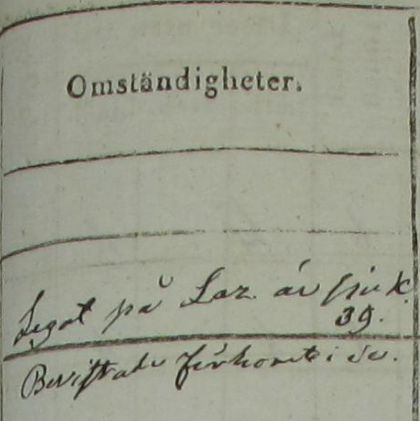 Omständigheter.
Legat på Laz. är sjuk.
39.
Bevistade förhöret i